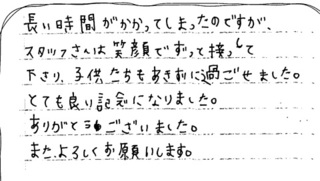 長い時間がかかってしまったのですが、
スタッフさんは笑顔でずっと接して
下さり、子供たちもあきずに過ごせました。
とても良い記念になりました。
ありがとうございました。
またよろしくお願いします。